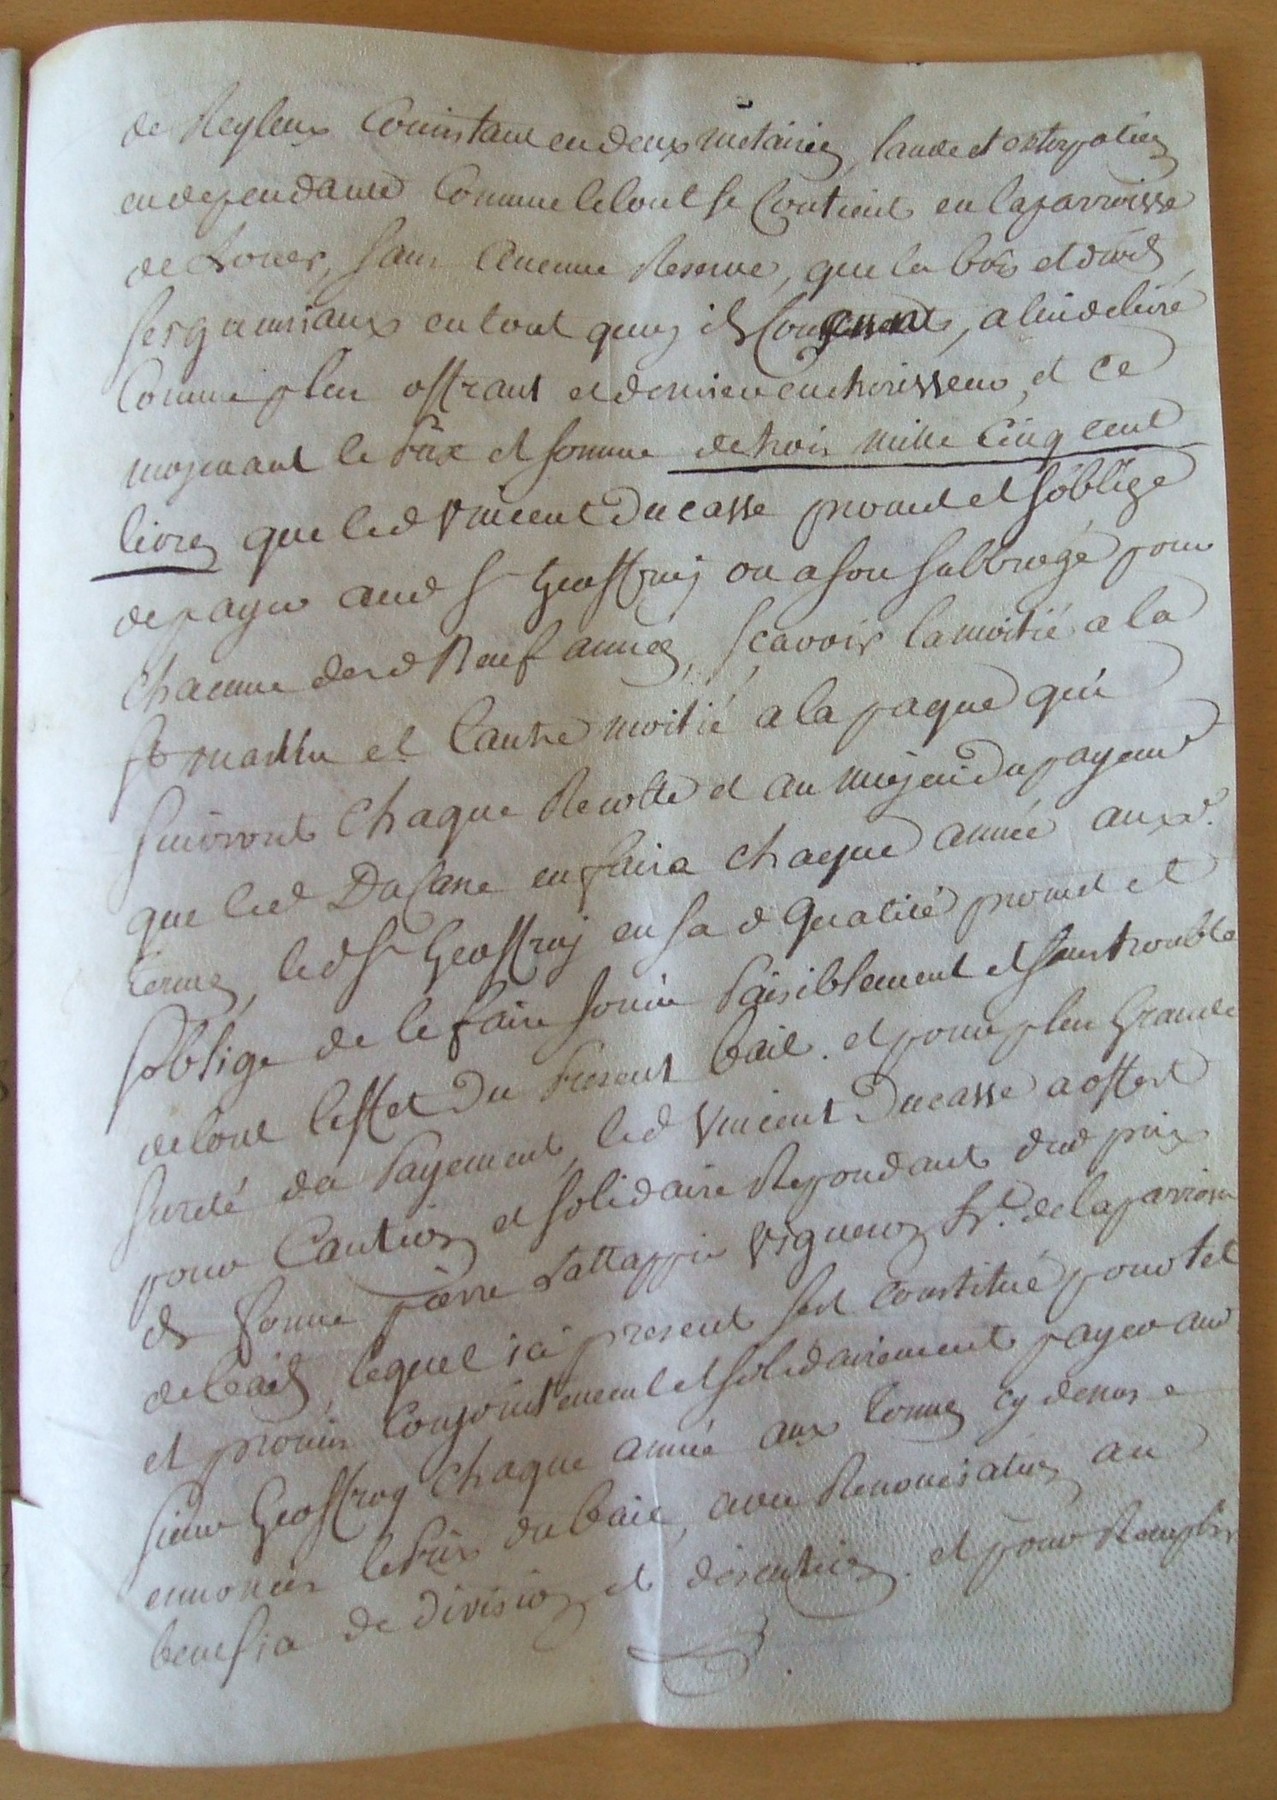 de Reyleux Consistant en deux metairies, lande et
en dependance Comme le tout se Contient en la parroisse
de sans Aucune Reserve, que la bois et droits
seigneuriaux en tout quoy ils Consistent, a luy delivré
Comme plus offrant et dernier encherisseur, et ce
moyenant le Prix et somme de trois mille Cinq cent
livres que led Vincent Ducasse promet et s'oblige
de payer aud Sr Geoffroy ou a son subbrogé pour
Chacune desd Neuf années, sçavoir la moitié a la
St martin et l'autre moitié a la paque qui
suivront Chaque Recolte et au moyen du payem.t
que led Ducasse en faira chaque année auxd.
termes, led Sr Geoffroy en sa d Qualité promet et
s'oblige de le faire Jouir Paisiblement et sans trouble
de tout l'effet du Present bail. et pour plus Grande
sureté du Payement, led Vincent Ducasse a offert
pour Caution et solidaire Repondant dud prix
de ferme pierre vigneron h.t de la parroisse
lequel ici present s'est constitué pour tel
et promis Conjointement et solidairement payer aud
sieur Geoffroy Chaque année aux termes cy dessus
ennoncés le Prix du bail, avec Renonciation au
benefice de division et discution. et pour Remplir